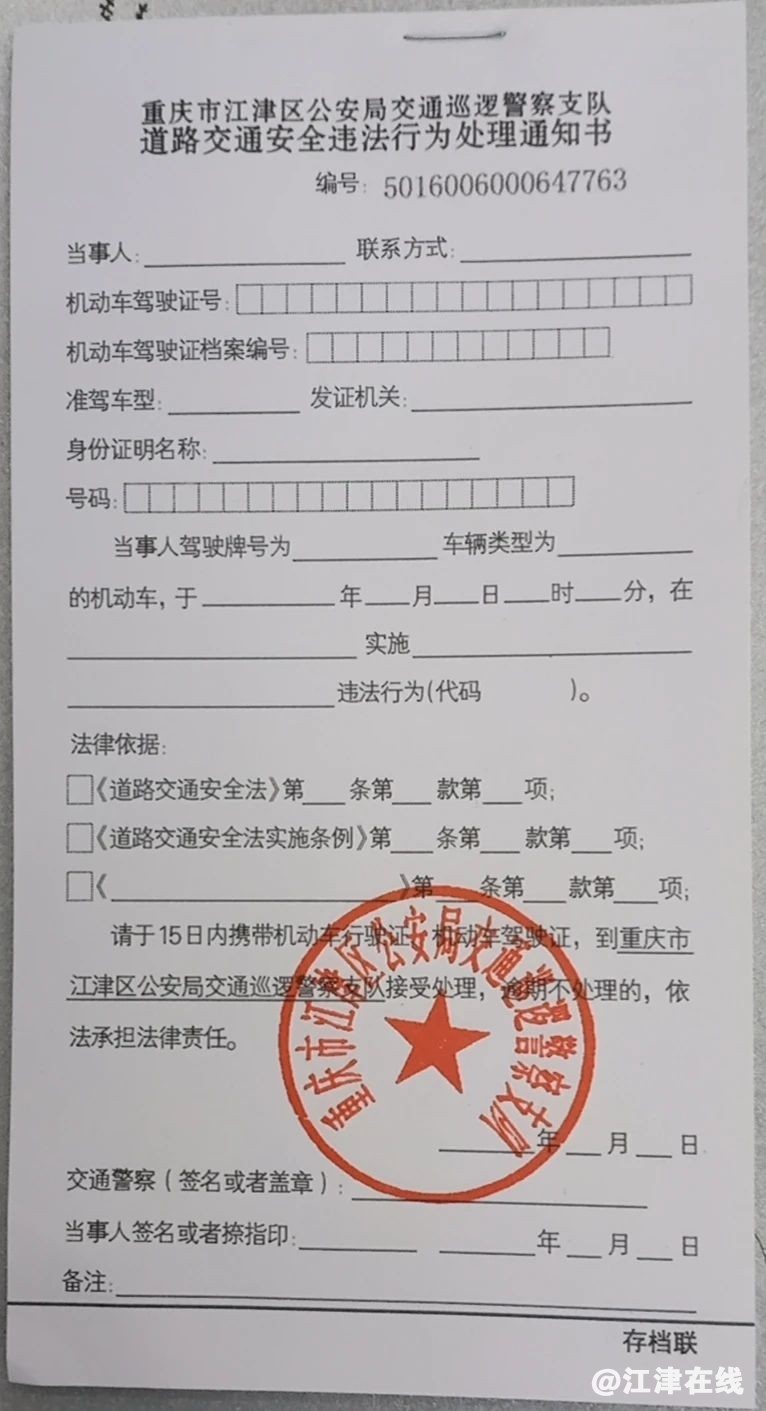 重庆市江津区公安局交通巡逻警察支队
道路交通安全违法行为处理通知书
编号: 5016006000647763
当事人: 联系方式:
机动车驾驶证号:
机动车驾驶证档案编号:
准驾车型: 发证机关:
身份证明名称:
号码:
当事人驾驶牌号为 车辆类型为
的机动车,于 年 月 日 时 分,在
实施
违法行为(代码 )。
法律依据:
《道路交通安全法》第 条第 款第 项;
《道路交通安全法实施条例》第 条第 款第 项;
《 》第 条第 款第 项;
请于15日内携带机动车行驶证、机动车驾驶证,到重庆市
江津区公安局交通巡逻警察支队接受处理,逾期不处理的,依
法承担法律责任。
重庆市江津区公安局交通巡逻警察支队
年 月 日
交通警察(签名或者盖章):
当事人签名或者捺指印: 年 月 日
备注:
存档联
@江津在线